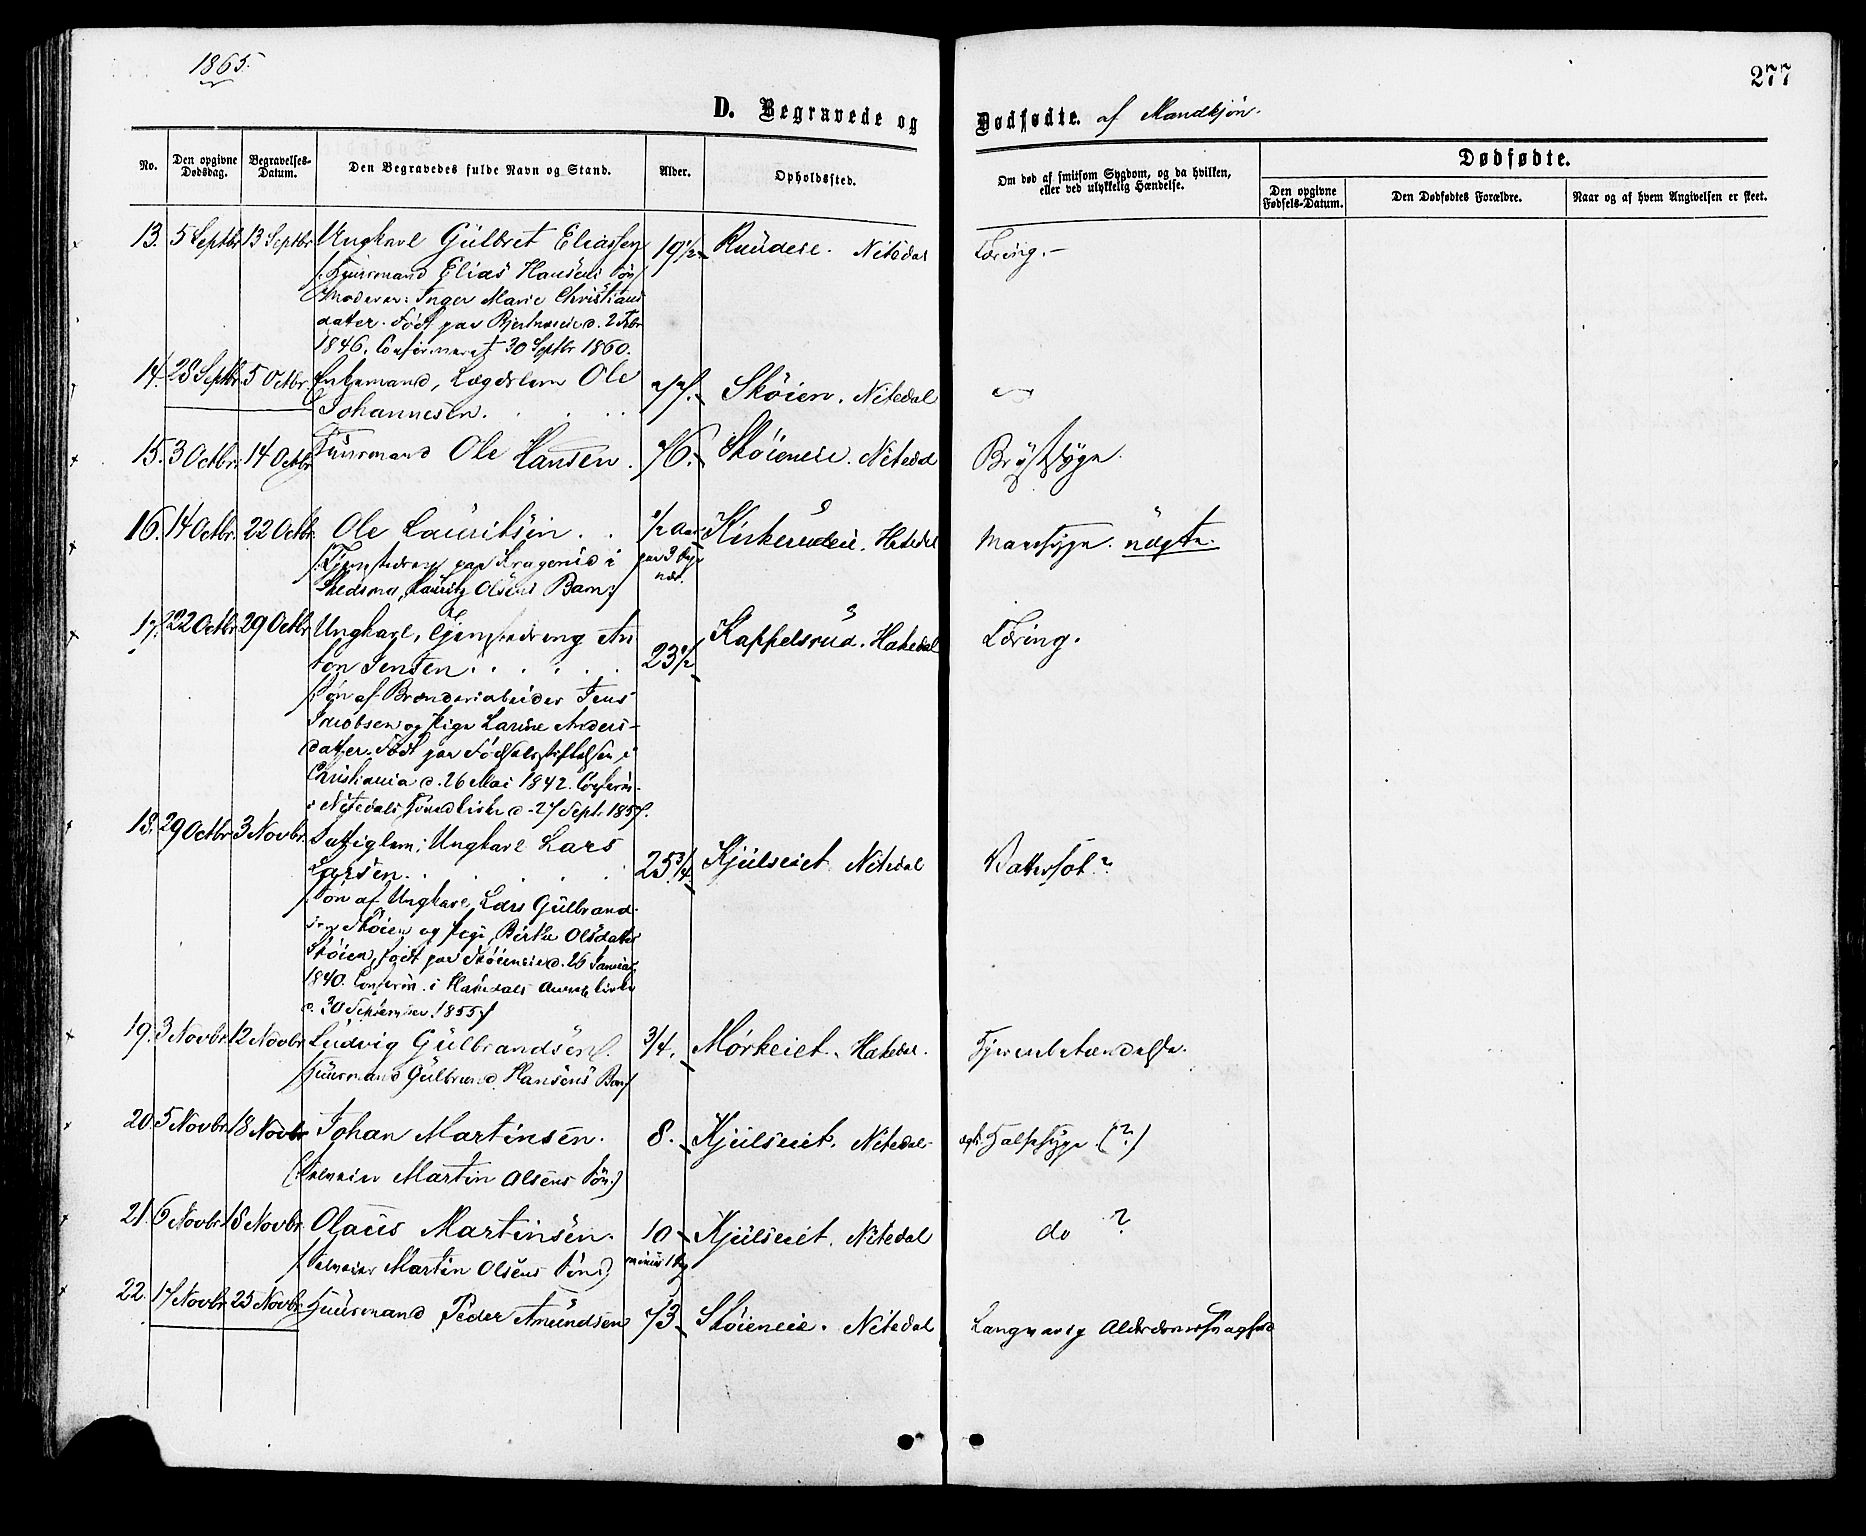 1865.
277
D. Begravede og Dødfødte. af Mandkjøn.
No.
Den opgivne Dødsdag.
Begravelses-Datum.
Den Begravedes fulde Navn og Stand.
Alder.
Opholdssted.
Om død af smitsom Sygdom, og da hvilken, eller ved ulykkelig Hændelse.
Dødfødte.
Den opgivne Fødsels-Datum.
Den Dødfødtes Forældre.
Naar og af hvem Angivelsen er skeet.
13. 5 Septbr 13 Septbr Ungkarl Gulbret Eliassen 19½ Ruudeie. Nitedal Tæring.-
/: Huusmand Elias Hansens Søn
Moderen: Inger Marie Christians
datter. Født paa d. 2 Febr
1846. Confirmeret 30 Septbr 1860.
14. 28 Septbr 5 Octbr. Enkemand, Lægdslem Ole 77. Skøien. Nitedal
Johannesen. . . . .
15. 3 Octbr. 14 Octbr Huusmand Ole Hansen. 76. Skøieneie. Nitedal Brystsyge.
16. 14 Octbr. 22 Octbr. Ole Lauritsen. . . ½ Aar Kirkerudeie. Hakedal ægte.
/: Tjenestedreng paa i
Skedsmo, Lauritz Olsens Barn :/
17. 22 Octbr 29 Octbr Ungkarl, Tjenestedreng An 23½ Kappelsrud. Hakedal Tæring.
ton Jensen. . . . . .
/: Søn af Brænderiarbeider Jens
Jacobsen og Pige Larine Anders-
datter. Født paa Fødselsstiftelsen i
Christiania d. 26 Mai 1842. Confirm.
i Nitedals d. 27 Sept. 1857.
18. 29 Octbr 3 Novbr. Fattiglem, Ungkarl Lars 25¾ Kjulseiet Nitedal Vattersot?
Larsen. . . . . .
/: Søn af Ungkarl Lars Gulbrand-
sen Skøien og Pige Birthe Olsdatter
Skøien, født paa Skøieneie d. 26 Januar
1840. Confirm. i Hakedals Annexkirke
d. 30 September 1855 :/
19. 3 Novbr. 12 Novbr Ludvig Gulbrandsen. 3/4. Mørkeiet. Hakedal. Hjernebetændelse.
/: Huusmand Gulbrand Hansens Barn :/
20. 5 Novbr. 18 Novbr Johan Martinsen. 8. Kjulseiet. Nitedal. Halssyge (?)
(: Selveier Martin Olsens Søn :)
21. 6 Novbr. 18 Novbr. Olaus Martinsen. 10 Kjulseiet. Nitedal do ?
/: Selveier Martin Olsens Søn :) minus 1 Dag
22. 17 Novbr. 25 Novbr. Huusmand Peder Amundsen 73. Skøieneie. Nitedal Langvarig Alderdomssvaghed